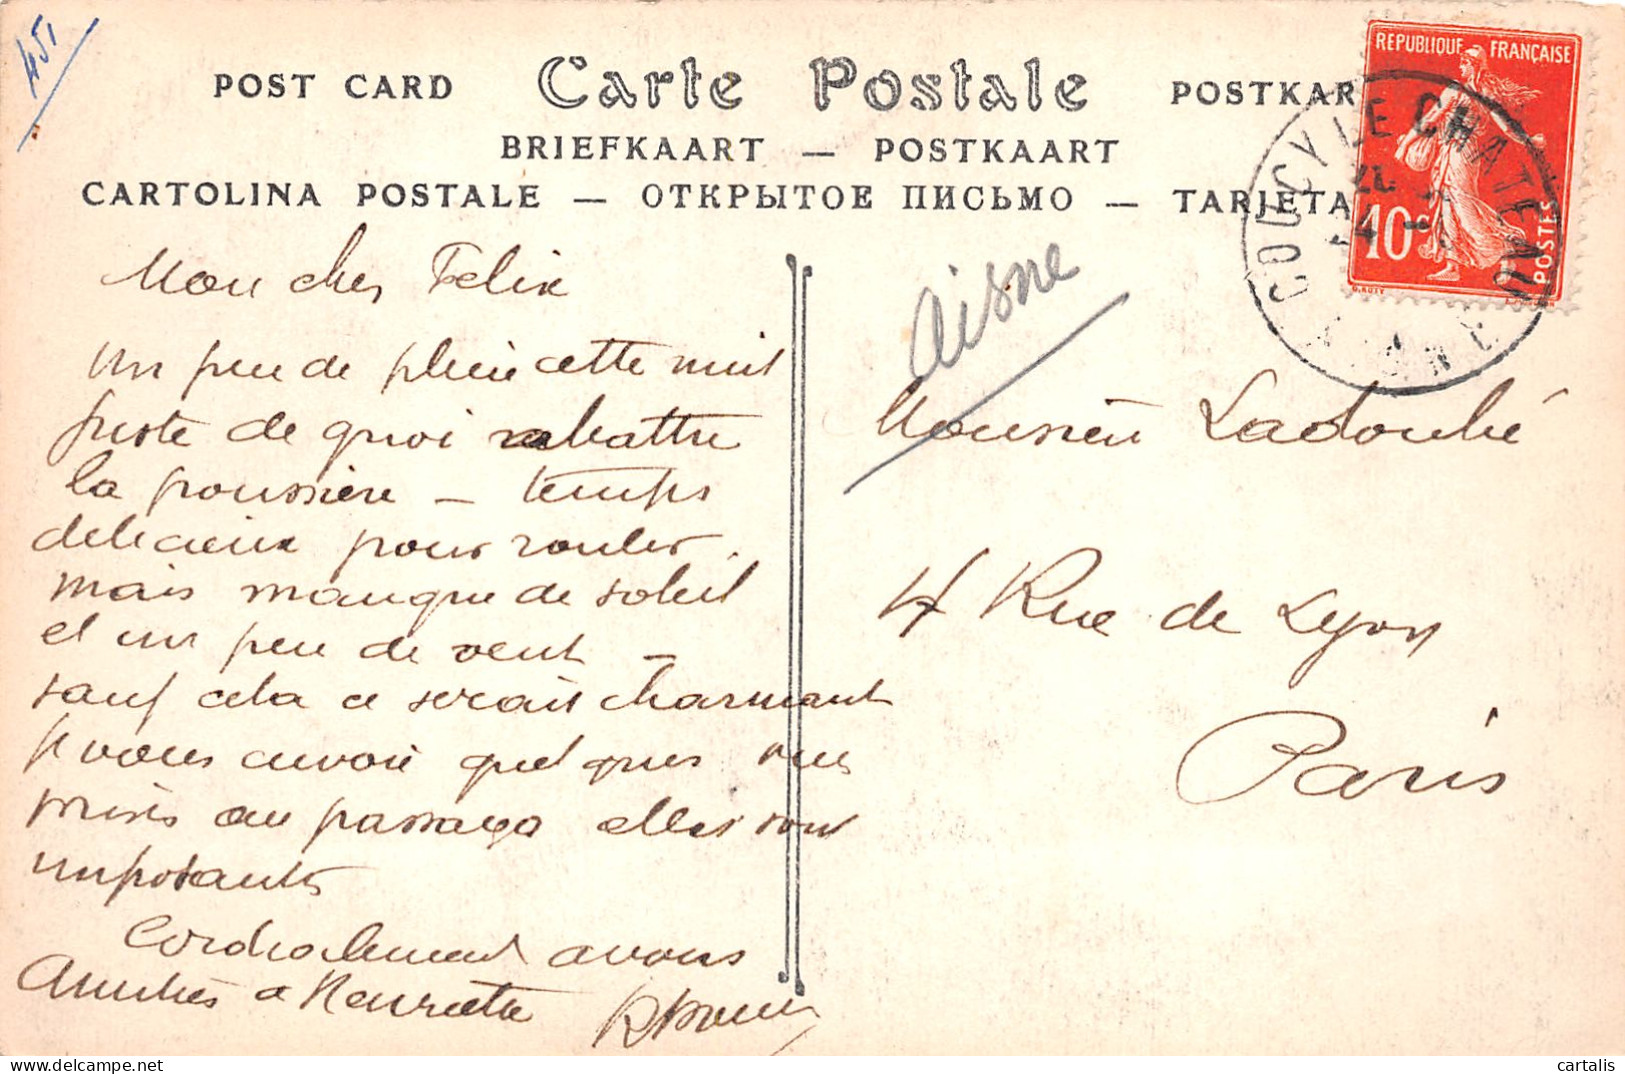 45,
POST CARD Carte Postale POSTKAR
BRIEFKAART — POSTKAART
CARTOLINA POSTALE — ОТКРЫТОЕ ПИСЬМО — TARJETA
REPUBLIQUE FRANÇAISE
10c
POSTES
O.ROTY
COUCY LE CHATEAU
AISNE
Mon cher Felix
un peu de pluie cette nuit
juste de quoi rabattre
la poussière — temps
delicieux pour rouler.
mais manque de soleil
et un peu de vent —
sauf cela ce serait charmant
je vous envoie quelques vues
prises au passage elles sont
imposantes
Cordialement a vous
Amitiés a Henriette
Aisne
Monsieur Ladoubé
4 Rue de Lyon
Paris
cartalis